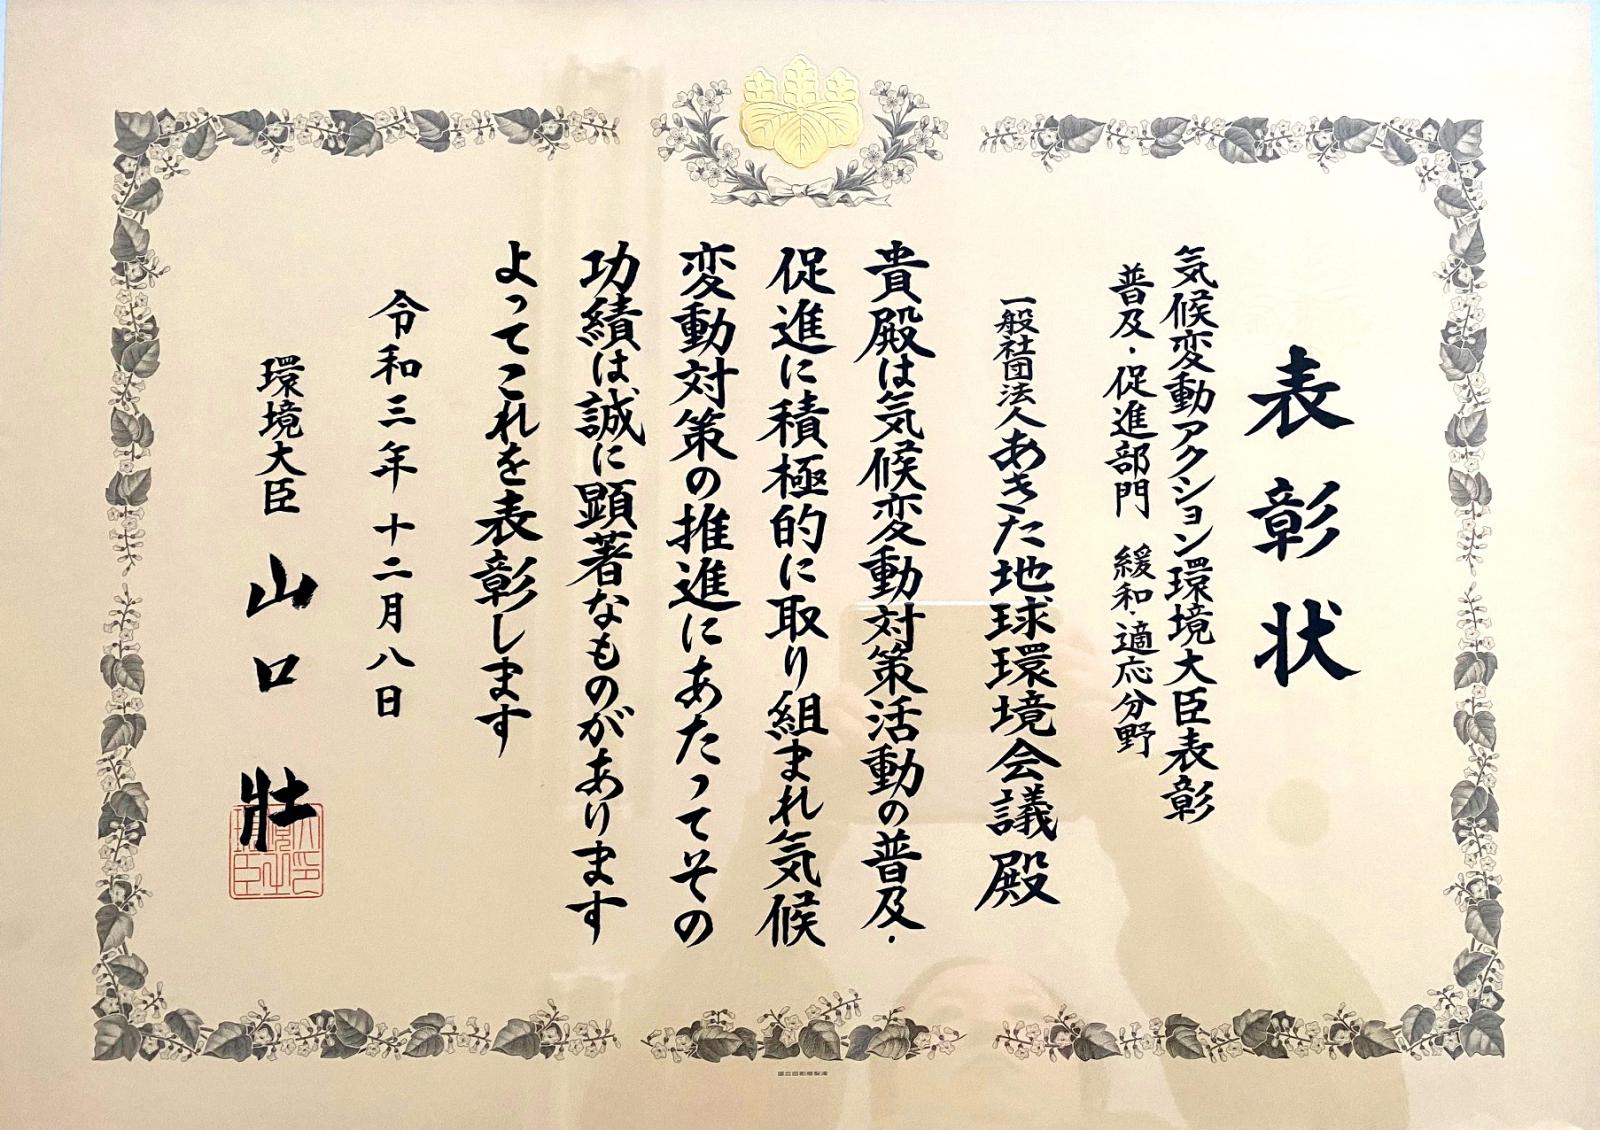 表彰状
気候変動アクション環境大臣表彰
普及・促進部門 緩和・適応分野
一般社団法人あきた地球環境会議殿
貴殿は気候変動対策活動の普及・
促進に積極的に取り組まれ気候
変動対策の推進にあたってその
功績は誠に顕著なものがあります
よってこれを表彰します
令和三年十二月八日
環境大臣 山口壯